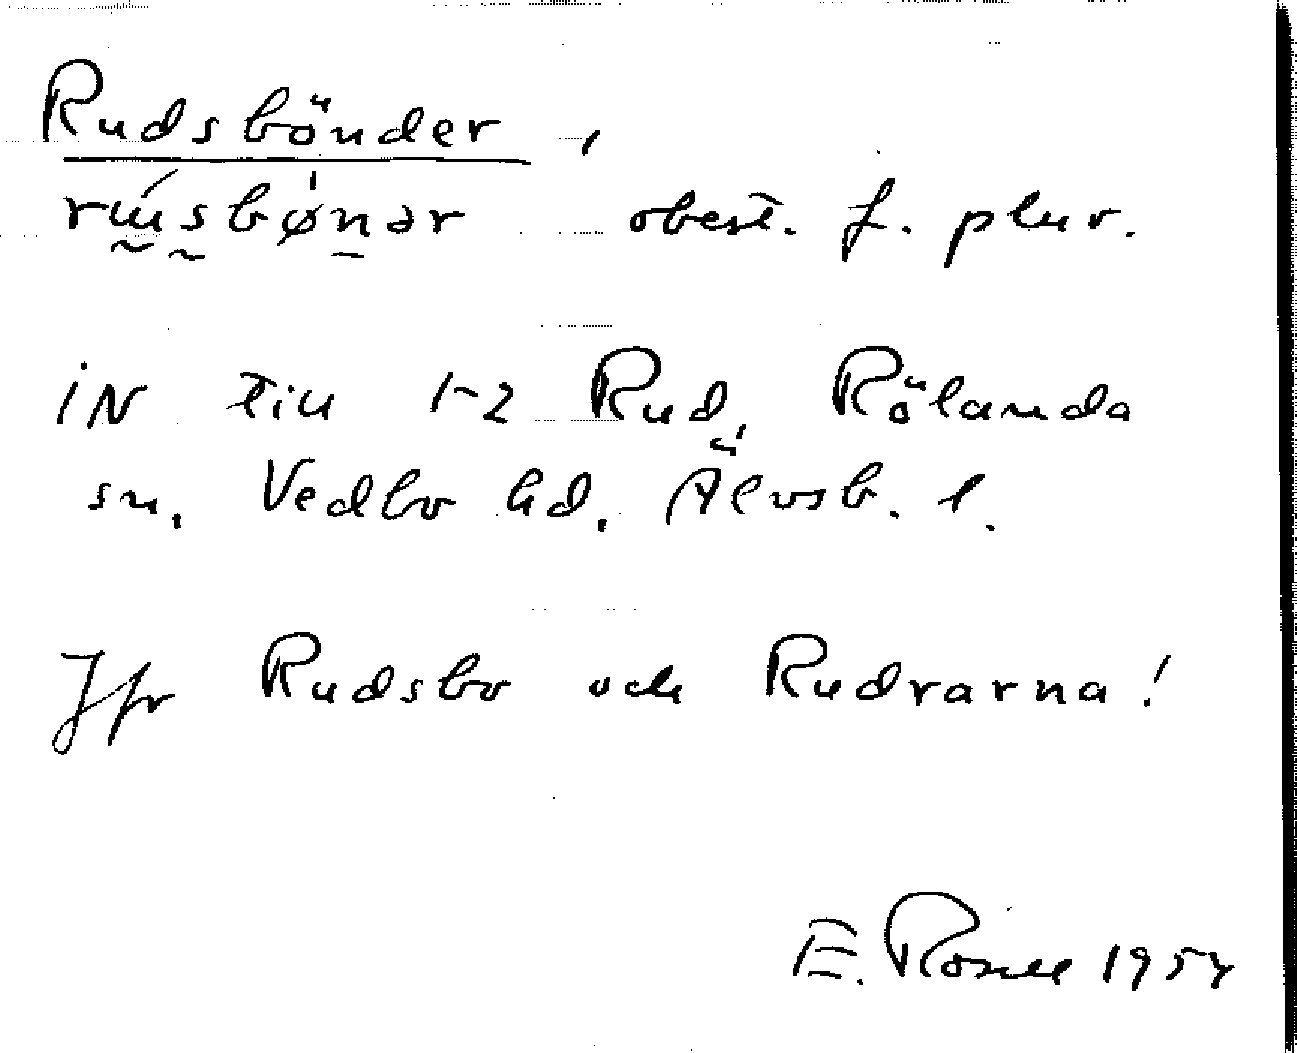 Rudsbönder,
rúu̇sbø̍nər obest. f. plur.
IN till 1-2 Rud, Rölanda
sn, Vedbo hd, Älvsb. l.
Jfr Rudsbo och Rudrarna!
E. Rosell 1957